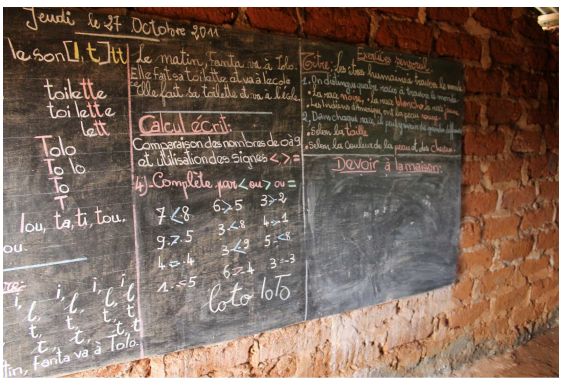 Jeudi le 27 Octobre 2011
le son [l, t] tt
toilette
toi lette
lett
Tolo
To lo
To
T
lou, ta, ti, tou.
ou.
i, i, i, i
l, l, l, l
t, t, t, t
t, t, t, t
tin, Fanta va à Tolo.
Le matin, Fanta va à Tolo.
Elle fait sa toilette et va à l'école
Elle fait sa toilette et va à l'école.
Calcul écrit:
Comparaison des nombres de 0 à 9
et utilisation des signes < > =
4) Complète par < ou > ou =
7 < 8 6 > 5 3 > 2
9 > 5 3 < 8 4 > 1
4 = 4 3 < 9 5 < 8
1 < 5 6 > 4 3 = 3
loto loTo
Titre: Les êtres humains à travers le monde
1. On distingue quatre races à travers le monde
la race noire, la race blanche la race jaune
Les Indiens d'Amérique ont la peau rouge.
2. Dans chaque race, il peut y avoir de grandes différences
Selon la taille
Selon la Couleur de la peau et des cheveux.
Devoir à la maison: